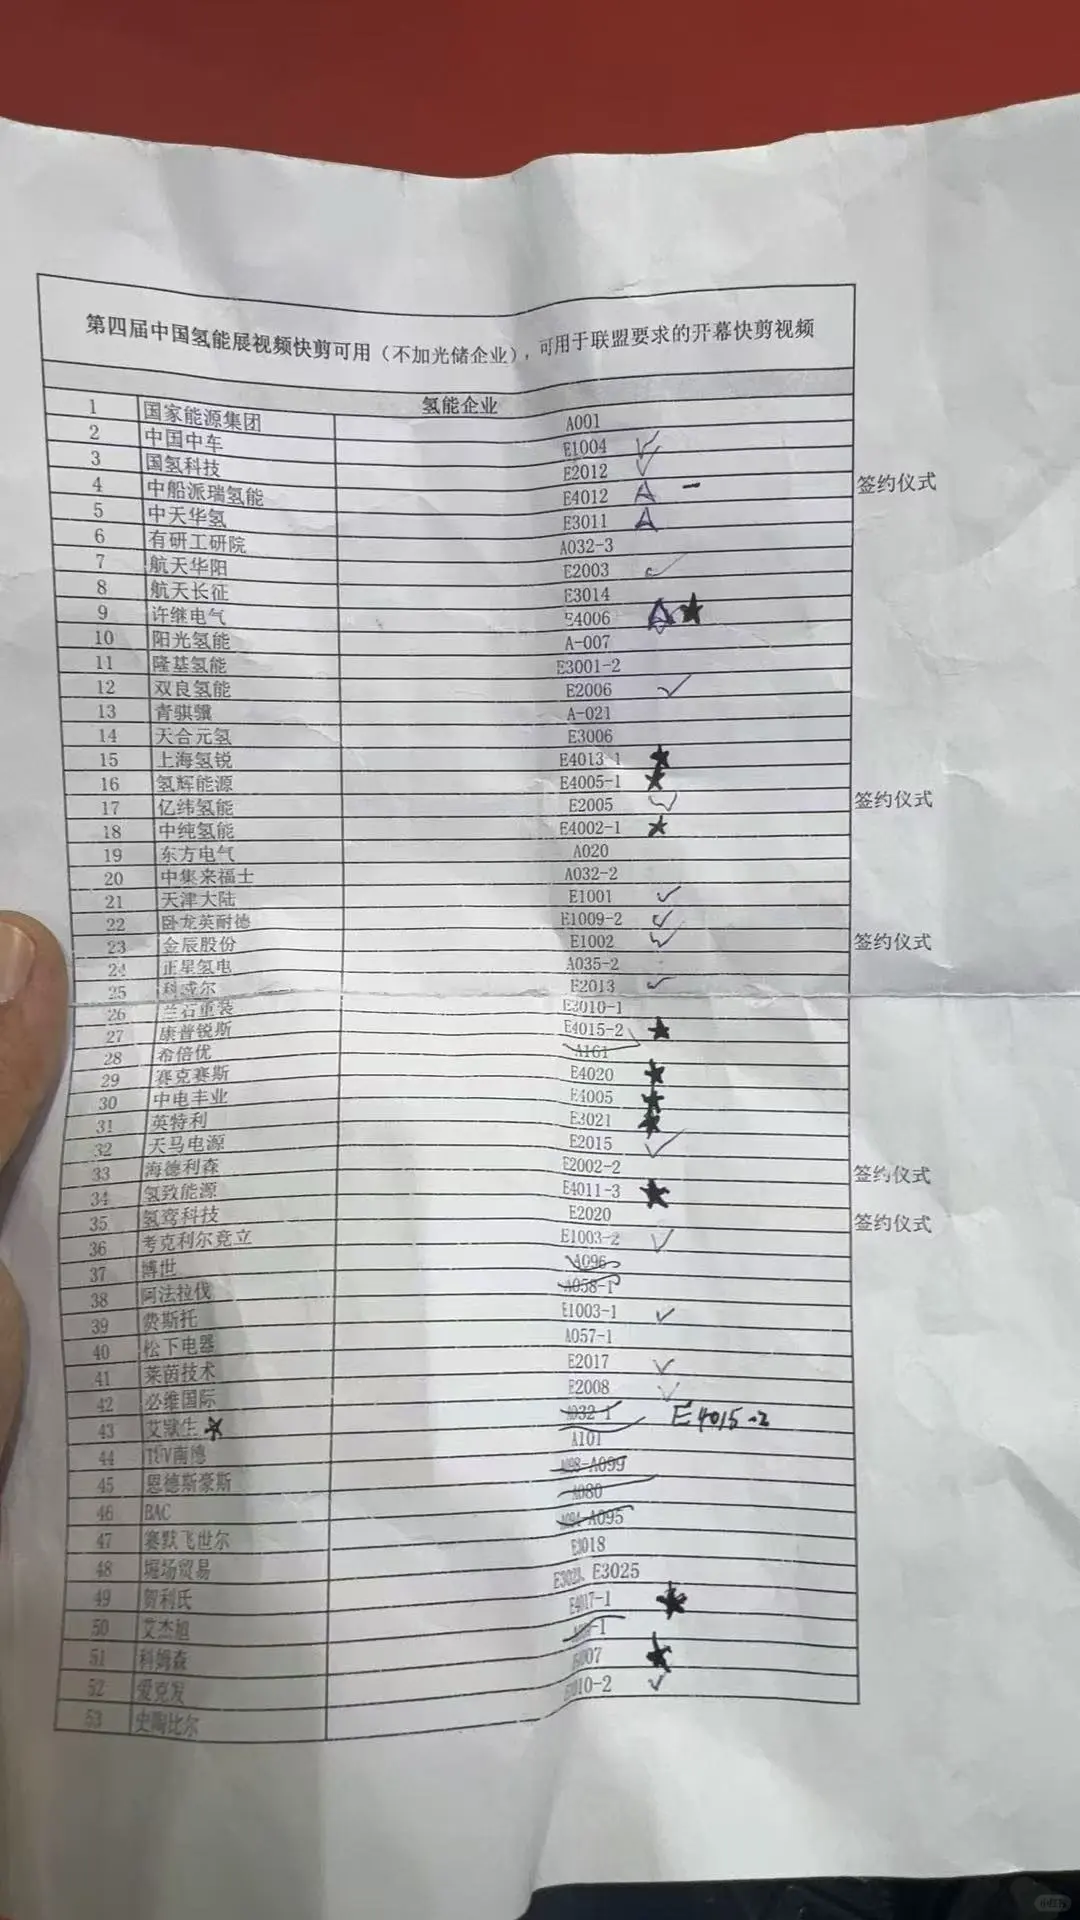 第四届中国氢能展视频快剪可用（不加光储企业），可用于联盟要求的开幕快剪视频
氢能企业
1 国家能源集团 A001
2 中国中车 E1004
3 国氢科技 E2012
4 中船派瑞氢能 E4012 签约仪式
5 中天华氢 E3011
6 有研工研院 A032-3
7 航天华阳 E2003
8 航天长征 E3014
9 许继电气 E4006
10 阳光氢能 A-007
11 隆基氢能 E3001-2
12 双良氢能 E2006
13 青骐骥 A-021
14 天合元氢 E3006
15 上海氢锐 E4013-1
16 氢辉能源 E4005-1
17 亿纬氢能 E2005 签约仪式
18 中纯氢能 E4002-1
19 东方电气 A020
20 中集来福士 A032-2
21 天津大陆 E1001
22 卧龙英耐德 E1009-2
23 金辰股份 E1002 签约仪式
24 正星氢电 A035-2
25 科威尔 E2013
26 兰石重装 E3010-1
27 康普锐斯 E4015-2
28 希倍优 A161
29 赛克赛斯 E4020
30 中电丰业 E4005
31 英特利 E3021
32 天马电源 E2015
33 海德利森 E2002-2 签约仪式
34 氢致能源 E4011-3
35 氢鸾科技 E2020 签约仪式
36 考克利尔竞立 E1003-2
37 博世 A096
38 阿法拉伐 A058-1
39 费斯托 E1003-1
40 松下电器 A057-1
41 莱茵技术 E2017
42 必维国际 E2008
43 艾默生 A032-1 E4015-2
44 TUV南德 A101
45 恩德斯豪斯 A098-A099
46 BAC A080
47 赛默飞世尔 A094-A095
48 堀场贸易 E3018
49 贺利氏 E3023、E3025
50 艾杰旭 E4017-1
51 科姆森
52 爱克发
53 史陶比尔